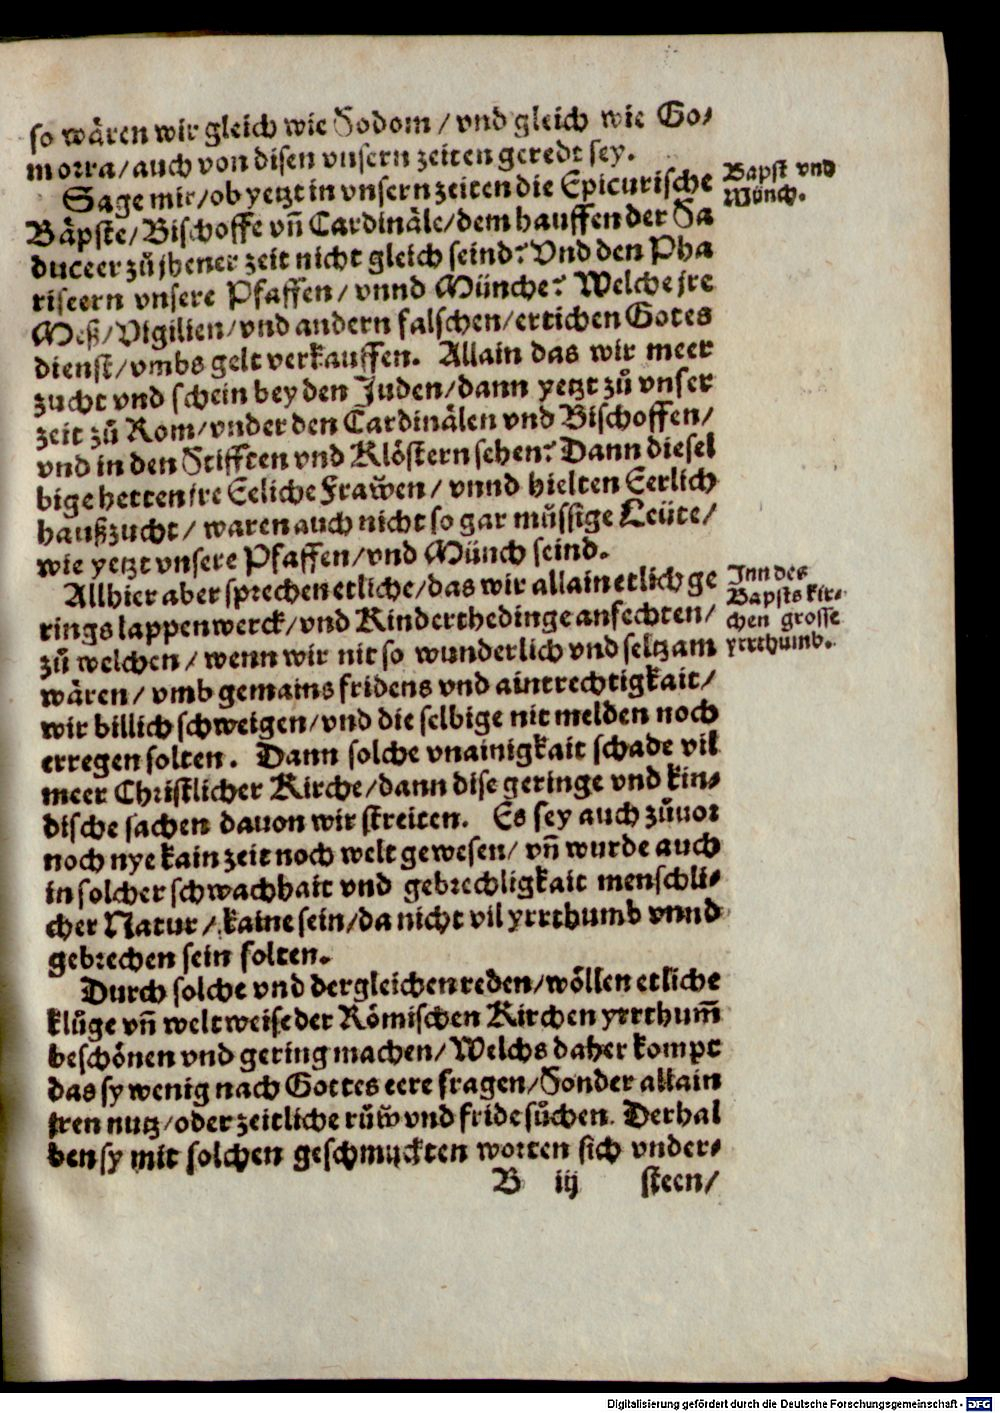 so wåren wir gleich wie Sodom / vnd gleich wie Go⸗
morra / auch von disen vnsern zeiten geredt sey.
Sage mir / ob yetzt in vnsern zeiten die Epicurische
Båpste / Bischoffe vñ Cardinåle / dem hauffen der Sa
duceer zů jhener zeit nicht gleich seind? Vnd den Pha
riseern vnsere Pfaffen / vnnd Münche? Welche jre
Meß / Vigilien / vnd andern falschen / ertichen Gotes
dienst / vmbs gelt verkauffen. Allain das wir meer
zucht vnd schein bey den Juden / dann yetzt zů vnser
zeit zů Rom / vnder den Cardinålen vnd Bischoffen /
vnd in den Stifften vnd Klöstern sehen? Dann diesel
bige hetten jre Eeliche Frawen / vnnd hielten Eerlich
haußzucht / waren auch nicht so gar müssige Leüte /
wie yetzt vnsere Pfaffen / vnd Münch seind.
Bapst vnd
Münch.
Allhier aber sprechen etliche / das wir allain etlich ge
rings lappenwerck / vnd Kinderthedinge anfechten /
zů welchen / wenn wir nit so wunderlich vnd seltzam
wåren / vmb gemains fridens vnd aintrechtigkait /
wir billich schweigen / vnd die selbige nit melden noch
erregen solten. Dann solche vnainigkait schade vil
meer Christlicher Kirche / dann dise geringe vnd kin⸗
dische sachen dauon wir streiten. Es sey auch zůuor
noch nye kain zeit noch welt gewesen / vñ wurde auch
in solcher schwachhait vnd gebrechligkait menschli⸗
cher Natur / kaine sein / da nicht vil yrrthumb vnnd
gebrechen sein solten.
Inn des
Bapsts kir⸗
chen grosse
yrrthumb.
Durch solche vnd dergleichen reden / wöllen etliche
klůge vñ weltweise der Römischen Kirchen yrrthum̃
beschönen vnd gering machen / Welchs daher kompt
das sy wenig nach Gottes eere fragen / Sonder allain
jren nutz / oder zeitliche růw vnd fride sůchen. Derhal
ben sy mit solchen geschmuckten worten sich vnder⸗
B iij steen /
Digitalisierung gefördert durch die Deutsche Forschungsgemeinschaft - DFG